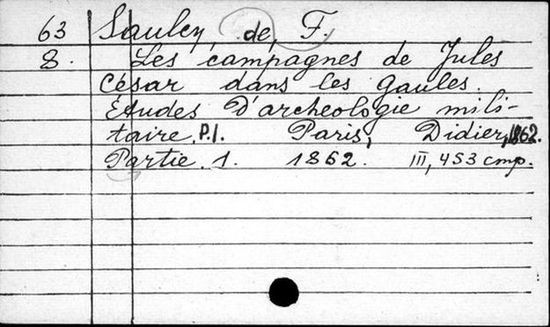 63 Saulcy de, F.
8. Les campagnes de Jules
César dans les Gaules.
Etudes D'archeologie mili-
taire, P.1. Paris, Didier, 1862.
Partie 1. 1862. III, 453 cmp.